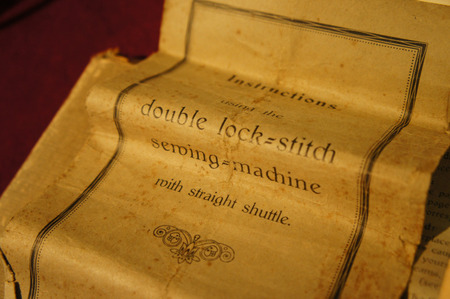 Instructions
using the
double lock=stitch
sewing=machine
with straight shuttle.